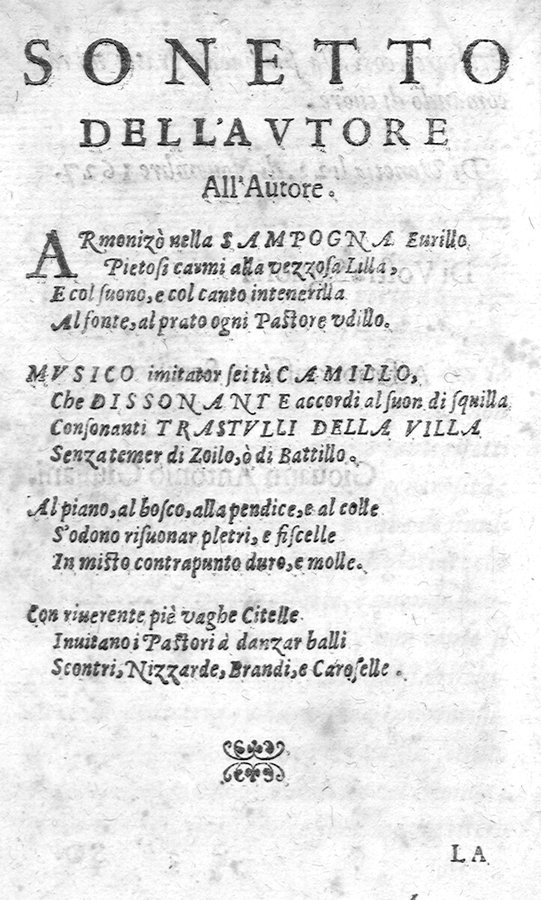 SONETTO
DELL'AVTORE
All'Autore.
ARmonizò nella SAMPOGNA Eurillo
Pietosi carmi alla vezzosa Lilla,
E col suono, e col canto intenerilla
Al fonte, al prato ogni Pastore vdillo.
MVSICO imitator sei tù CAMILLO,
Che DISSONANTE accordi al suon di squilla
Consonanti TRASTVLLI DELLA VILLA
Senza temer di Zoilo, ò di Battillo.
Al piano, al bosco, alla pendice, e al colle
S'odono risuonar pletri, e fiscelle
In misto contrapunto duro, e molle.
Con riuerente piè vaghe Citelle
Inuitano i Pastori à danzar balli
Scontri, Nizzarde, Brandi, e Caroselle.
LA